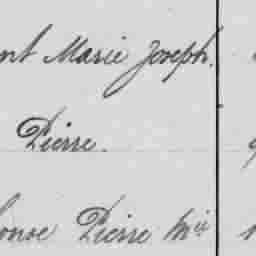 nt Marie Joseph.
Pierre.
onse Pierre Mie